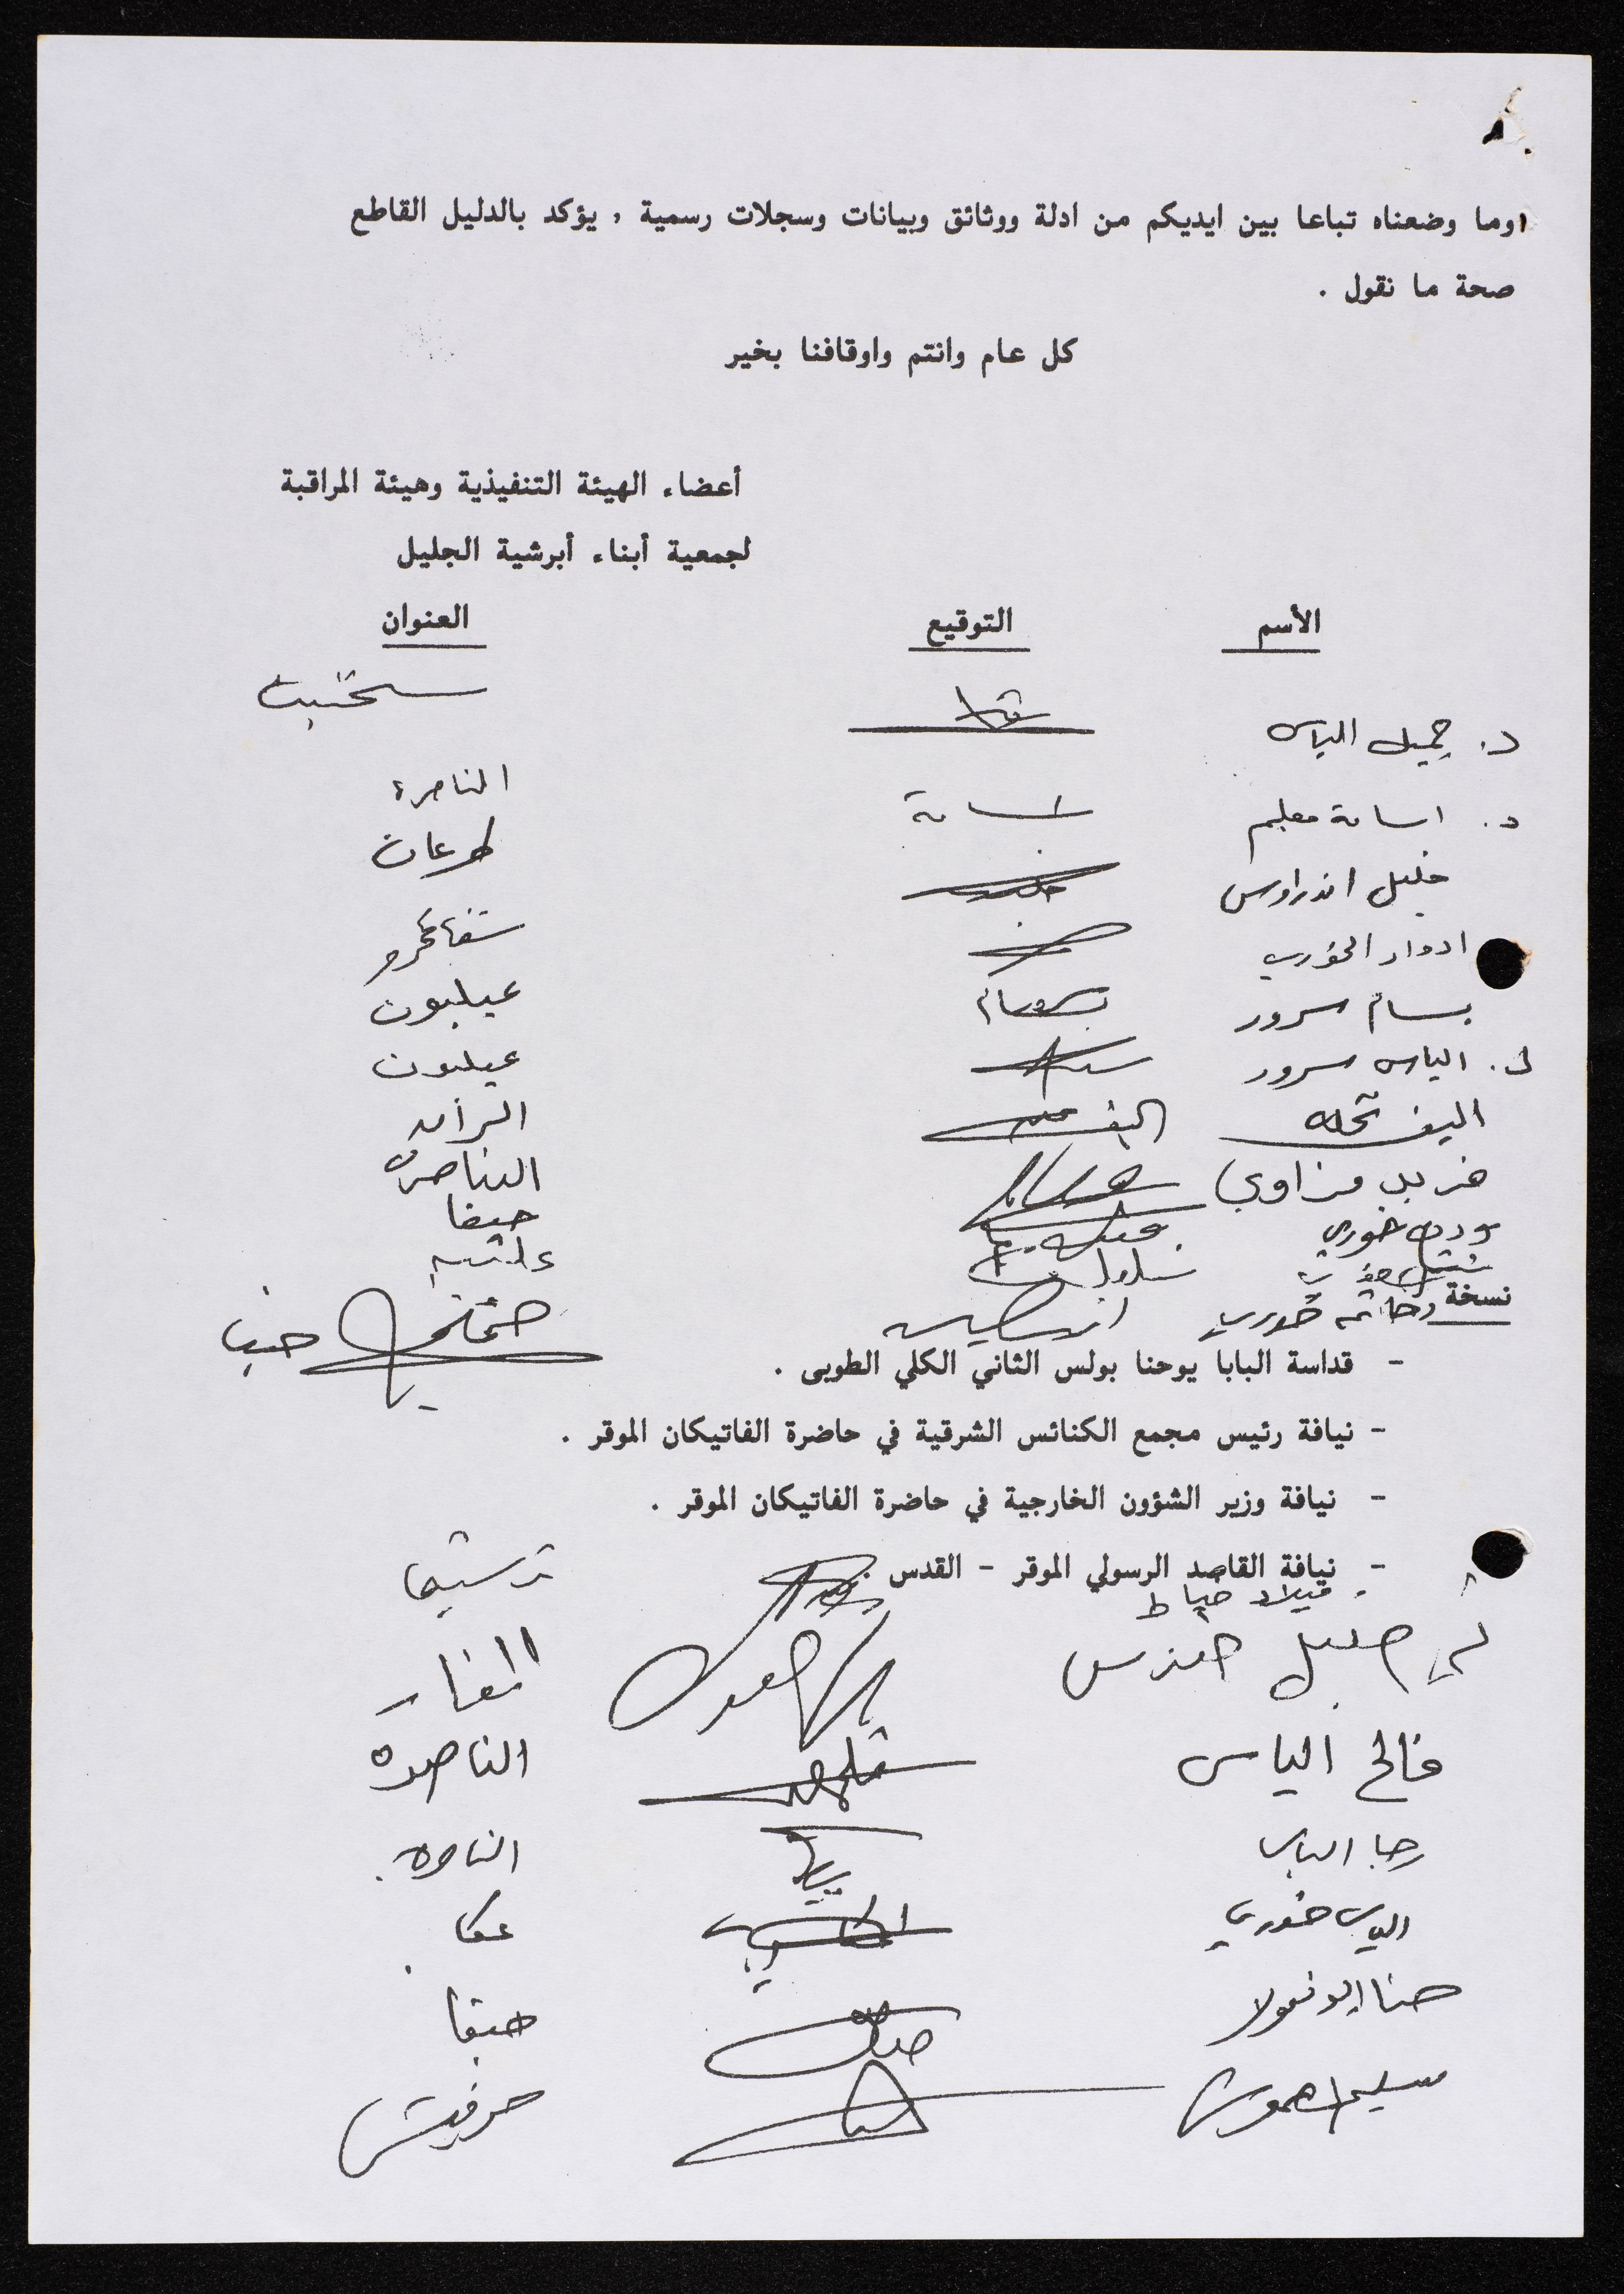 وما وضعناه تباعا بين ايديكم من ادلة ووثائق وبيانات وسجلات رسمية , يؤكد بالدليل القاطع
صحة ما نقول .
كل عام وانتم واوقافنا بخير
أعضاء الهيئة التنفيذية وهيئة المراقبة
لجمعية أبناء أبرشية الجليل
الأسم التوقيع العنوان
د. جميل الياس سخنين
د. اسامة معلم اسامة الناصرة
خليل اندراوس طرعان
ادوار الخوري شفاعمرو
بسام سرور بسام عيلبون
الياس سرور عيلبون
اليف الرامه
مزاوي الناصرة
خوري حيفا
نسخة خوري حيفا
- قداسة البابا يوحنا بولس الثاني الكلي الطوبى .
- نيافة رئيس مجمع الكنائس الشرقية في حاضرة الفاتيكان الموقر .
- نيافة وزير الشؤون الخارجية في حاضرة الفاتيكان الموقر .
- نيافة القاصد الرسولي الموقر - القدس .
ميلاد خياط ترشيحا
خليل المغار
فالح الياس الناصرة
رجا الياس الناصرة.
الياس خوري عكا
حنا ابو نقولا حيفا
سليم حرفيش